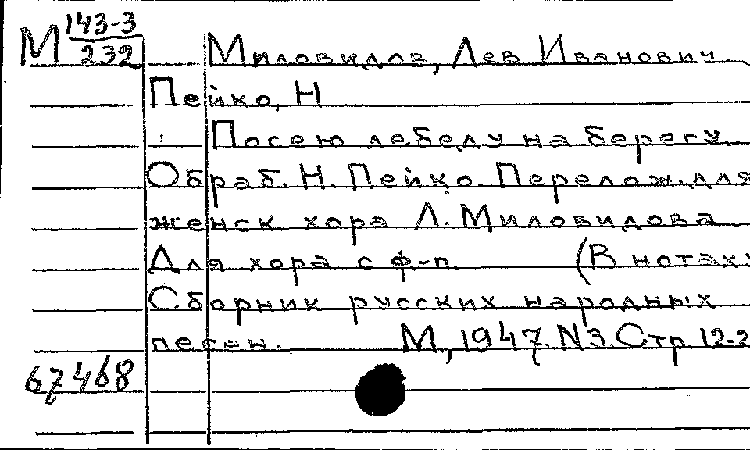 М 143-3/232 Миловидов, Лев Иванович
Пейко, Н
Посею лебеду на берегу.
Обраб. Н. Пейко. Перелож. для
женск хора Л. Миловидова
Для хора с ф-п. (В нотах:
Сборник русских народных
песен. М, 1947, N3 Стр 12-2
67468